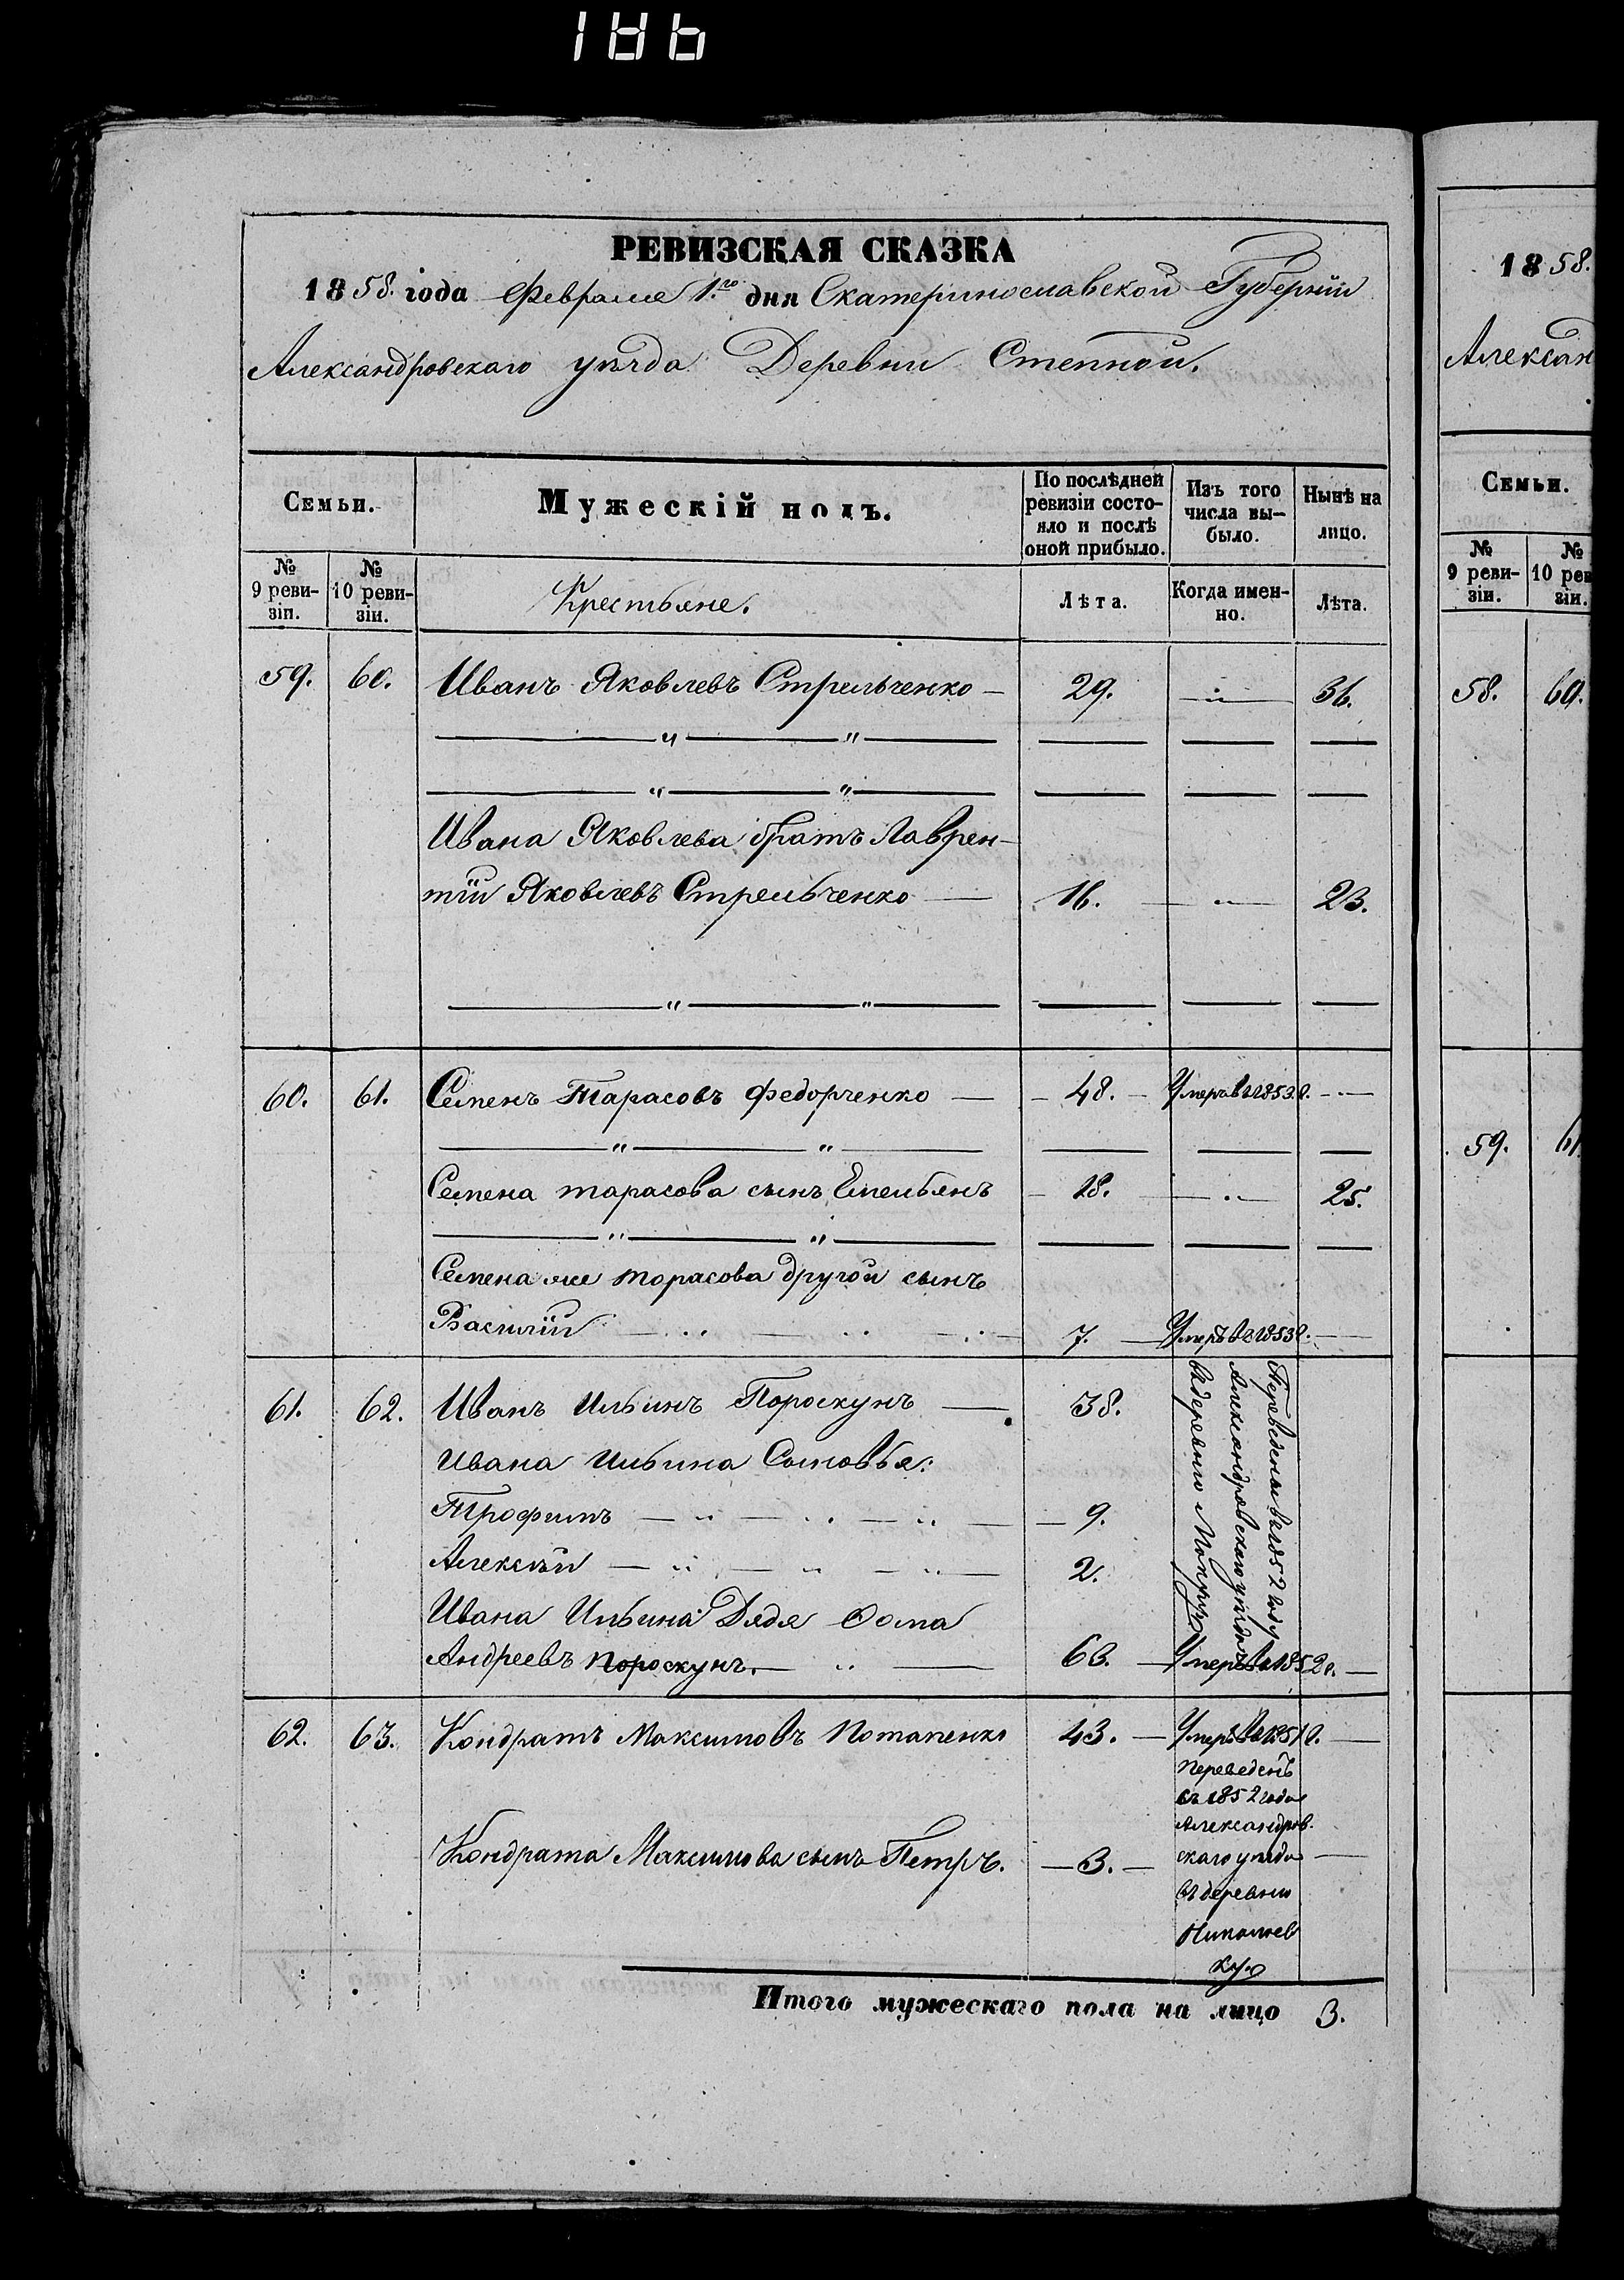 186
РЕВИЗСКАЯ СКАЗКА
1858. года Февраля 1.го дня Екатеринославской Губерніи
Александровскаго уѣзда Деревни Степной.
Семьи.
Мужескій полъ.
По послѣдней
ревизіи состо-
яло и послѣ
оной прибыло.
Изъ того
числа вы-
было.
Нынѣ на
лицо.
№
9 реви-
зіи.
№
10 реви-
зіи.
Крестьяне.
Лѣта.
Когда имен-
но.
Лѣта.
59. 60. Иванъ Яковлевъ Стрельченко — 29. — 36.
Ивана Яковлева братъ Лаврен-
тій Яковлевъ Стрельченко — 16. — 23.
60. 61. Семенъ Тарасовъ Федорченко — 48. — Умеръ въ 1853 г. —
Семена тарасова сынъ Емельянъ — 18. — 25.
Семена же тарасова другой сынъ
Василій — 7. — Умеръ въ 1853 г. —
61. 62. Иванъ Ильинъ Пороскунъ — 38.
Ивана Ильина Сыновья:
Трофимъ — 9.
Алексѣй — 2.
Переведены въ 1852 году
Александровскаго уѣзда
въ деревню
Ивана Ильина Дядя Фома
Андреевъ Пороскунъ. — 63. — Умеръ въ 1852 г. —
62. 63. Кондратъ Максимовъ Потапенко 43. — Умеръ въ 1851 г. —
Кондрата Максимова сынъ Петръ. — 3. —
переведенъ
въ 1852 года
Александров.
скаго уѣзда
въ деревню
Николаев
ку.
Итого мужескаго пола на лицо 3.
1858.
Александ
Семьи.
№
9 реви-
зіи.
№
10 рев
зіи.
58. 60.
59. 61